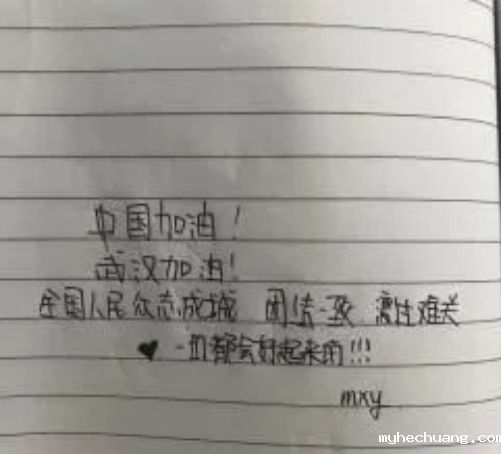 中国加油!
武汉加油!
全国人民众志成城 团结一致 难关
♥ 一切都会好起来的!!!
mxy
myhechuang.com